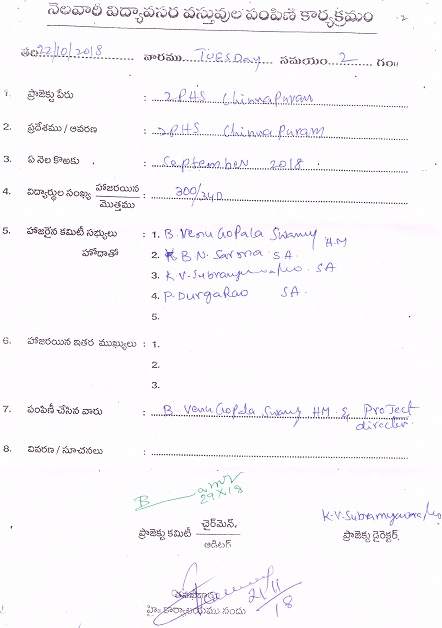 నెలవారీ విద్యావసర వస్తువుల పంపిణి కార్యక్రమం
తేది 22/10/2018 వారము TUESDay సమయం 2 గం॥
1. ప్రాజెక్టు పేరు : ZPHS Chinnapuram
2. ప్రదేశము / ఆవరణ : ZPHS Chinnapuram
3. ఏ నెల కొఱకు : September 2018
4. విద్యార్థుల సంఖ్య హాజరయిన / మొత్తము : 300/340
5. హాజరైన కమిటీ సభ్యులు : 1. B. Venu Gopala Swamy H.M
హోదాతో 2. B.N. Sarona S.A.
3. K.V. Subramyeswara Rao SA
4. P. Durga Rao SA.
5.
6. హాజరయిన ఇతర ముఖ్యులు : 1.
2.
3.
7. పంపిణీ చేసిన వారు : B. Venu Gopala Swamy HM & Project
director.
8. వివరణ / సూచనలు :
29 X 18
చైర్‌మెన్,
ప్రాజెక్టు కమిటీ
ఆడిటర్
K.V. Subramyeswara Rao
ప్రాజెక్టు డైరెక్టర్.
21/11/18